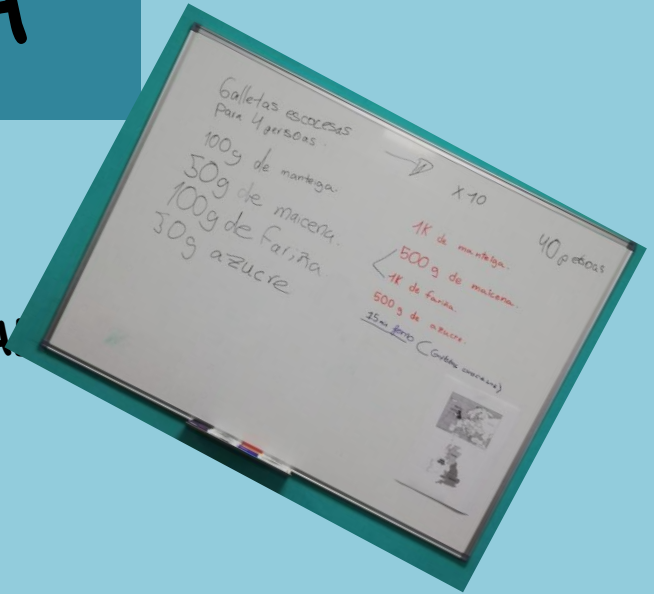 Galletas escocesas
para 4 persoas.
100g de manteiga.
50g de maicena.
100g de fariña
50g azucre
X 10
40 persoas
1K de manteiga.
500g de maicena.
1K de fariña.
500g de azucre.
15 forno (